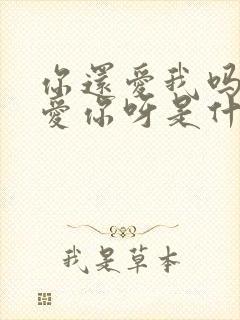 你還愛我嗎
愛你呀是什
我是草本